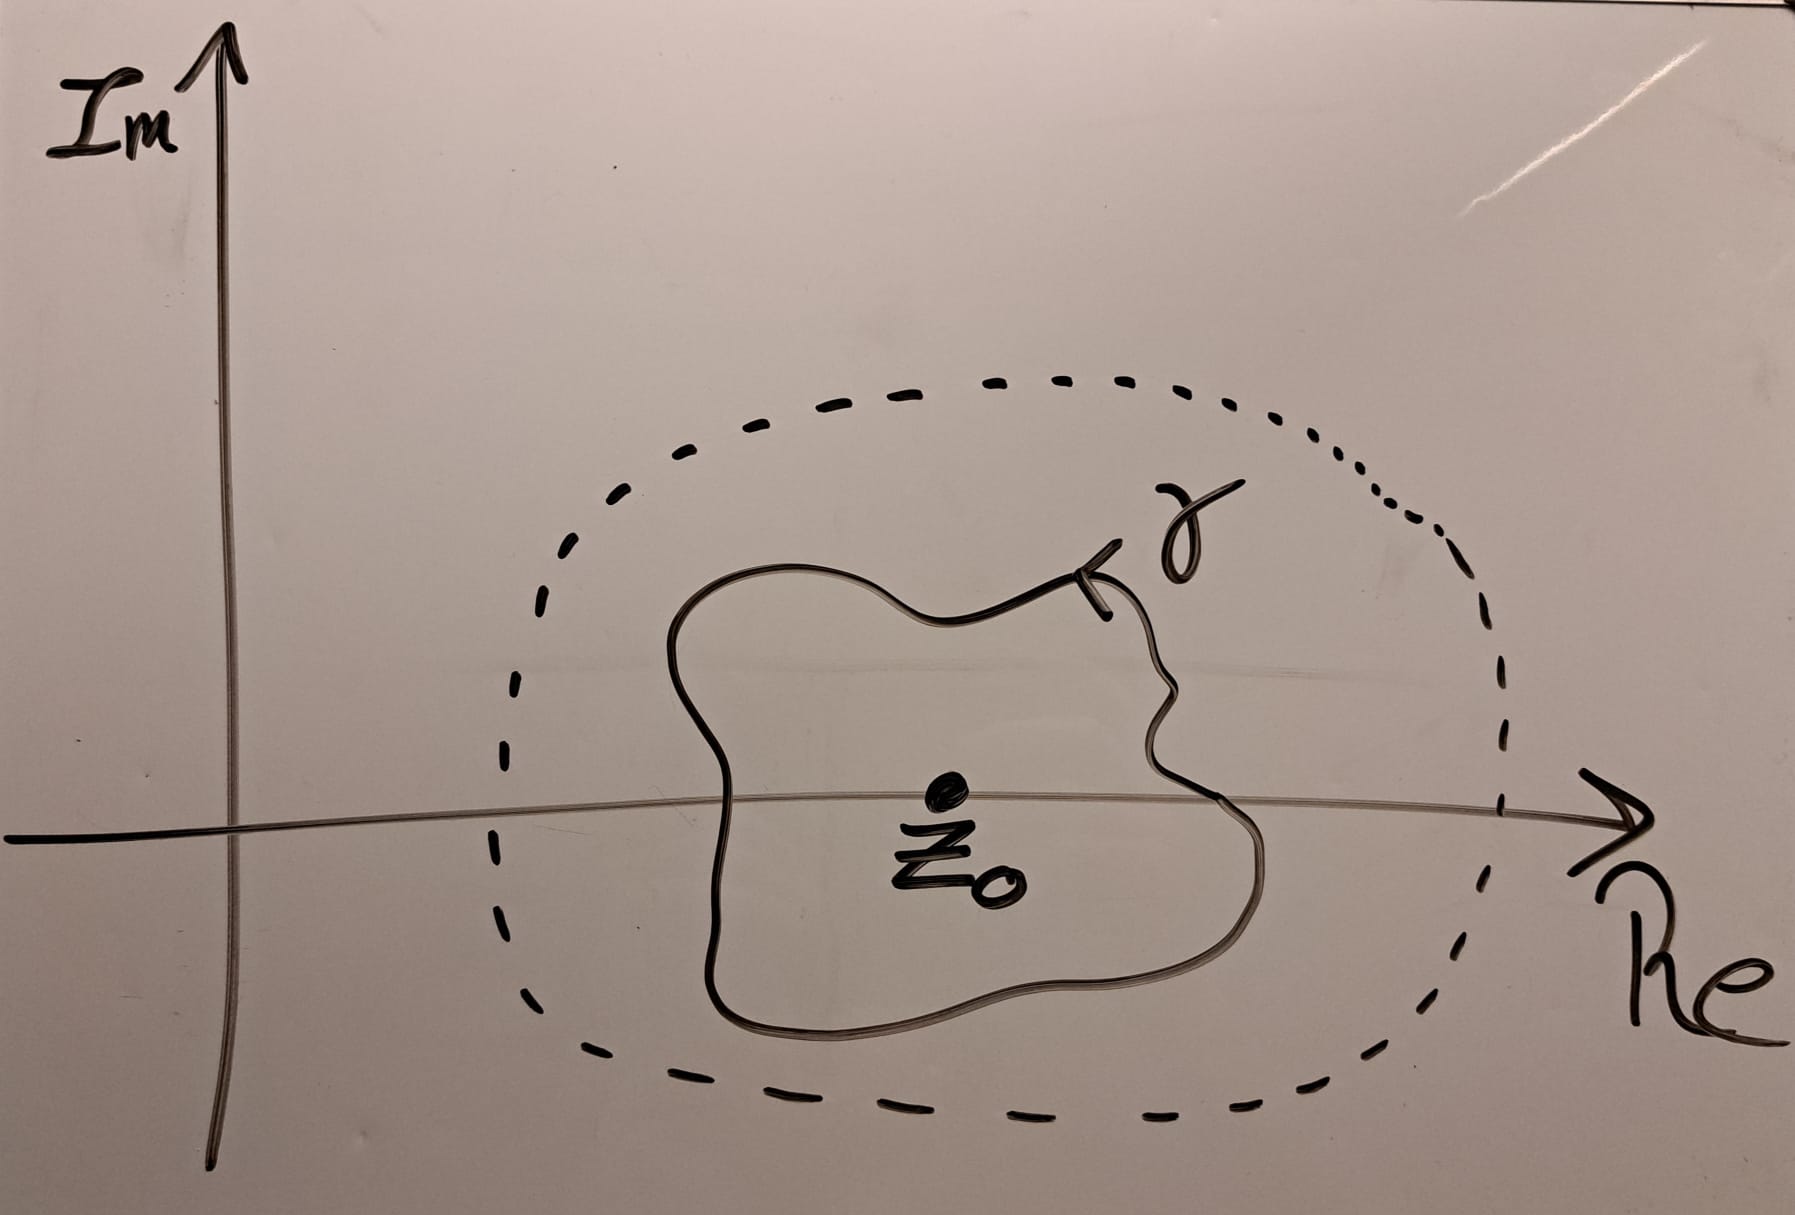 Im
γ
Z₀
Re